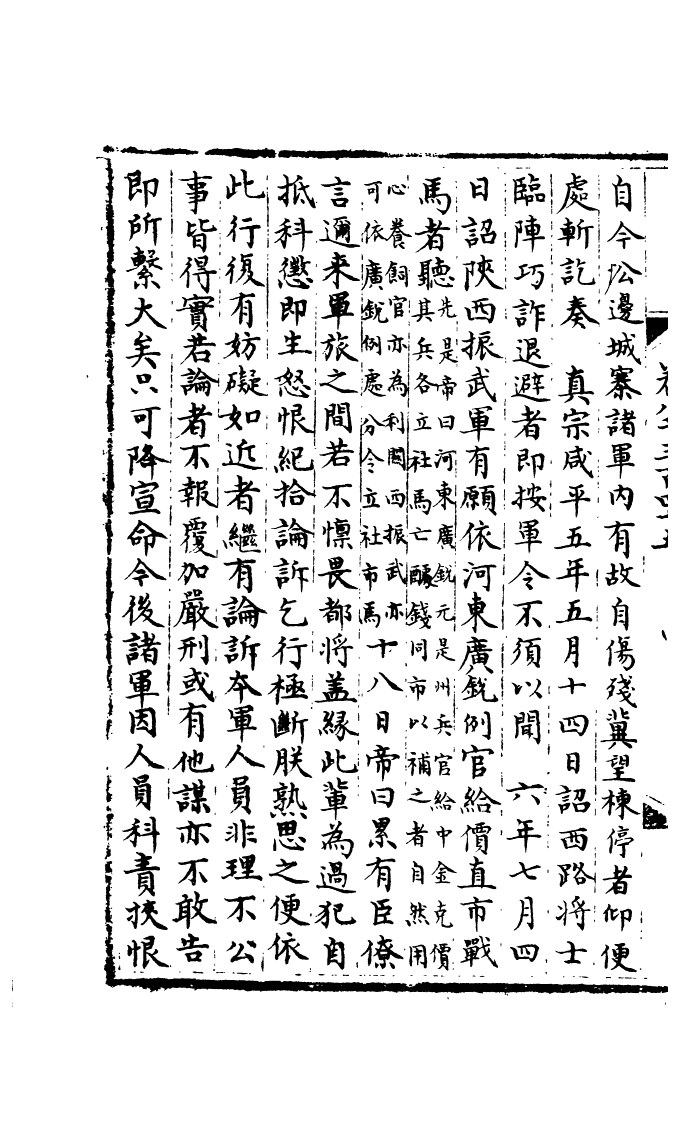 自今㳂邊城寨諸軍內有故自傷殘冀望楝停者仰便
處斬訖奏　真宗咸平五年五月十四日詔西路將士
臨陣巧詐退避者即按軍令不須以聞　六年七月四
日詔陝西振武軍有願依河東廣銳例官給價直市戰
馬者聽先是帝曰河東廣銳元是州兵官給中金克價
其兵各立社馬亡醵錢同市以補之者自然用
心養飼官亦為利閞西振武亦
可依廣銳例處分令立社市馬十八日帝曰累有臣僚
言邇来軍旅之間若不懍畏都将盖緣此輩為過犯自
抵科懲即生怒恨紀拾論訴乞行極斷朕熟思之便依
此行復有妨礙如近者繼有論訴夲軍人員非理不公
事皆得實若論者不報覆加嚴刑或有他謀亦不敢告
即所繫大矣只可降宣命令後諸軍因人員科責挾恨